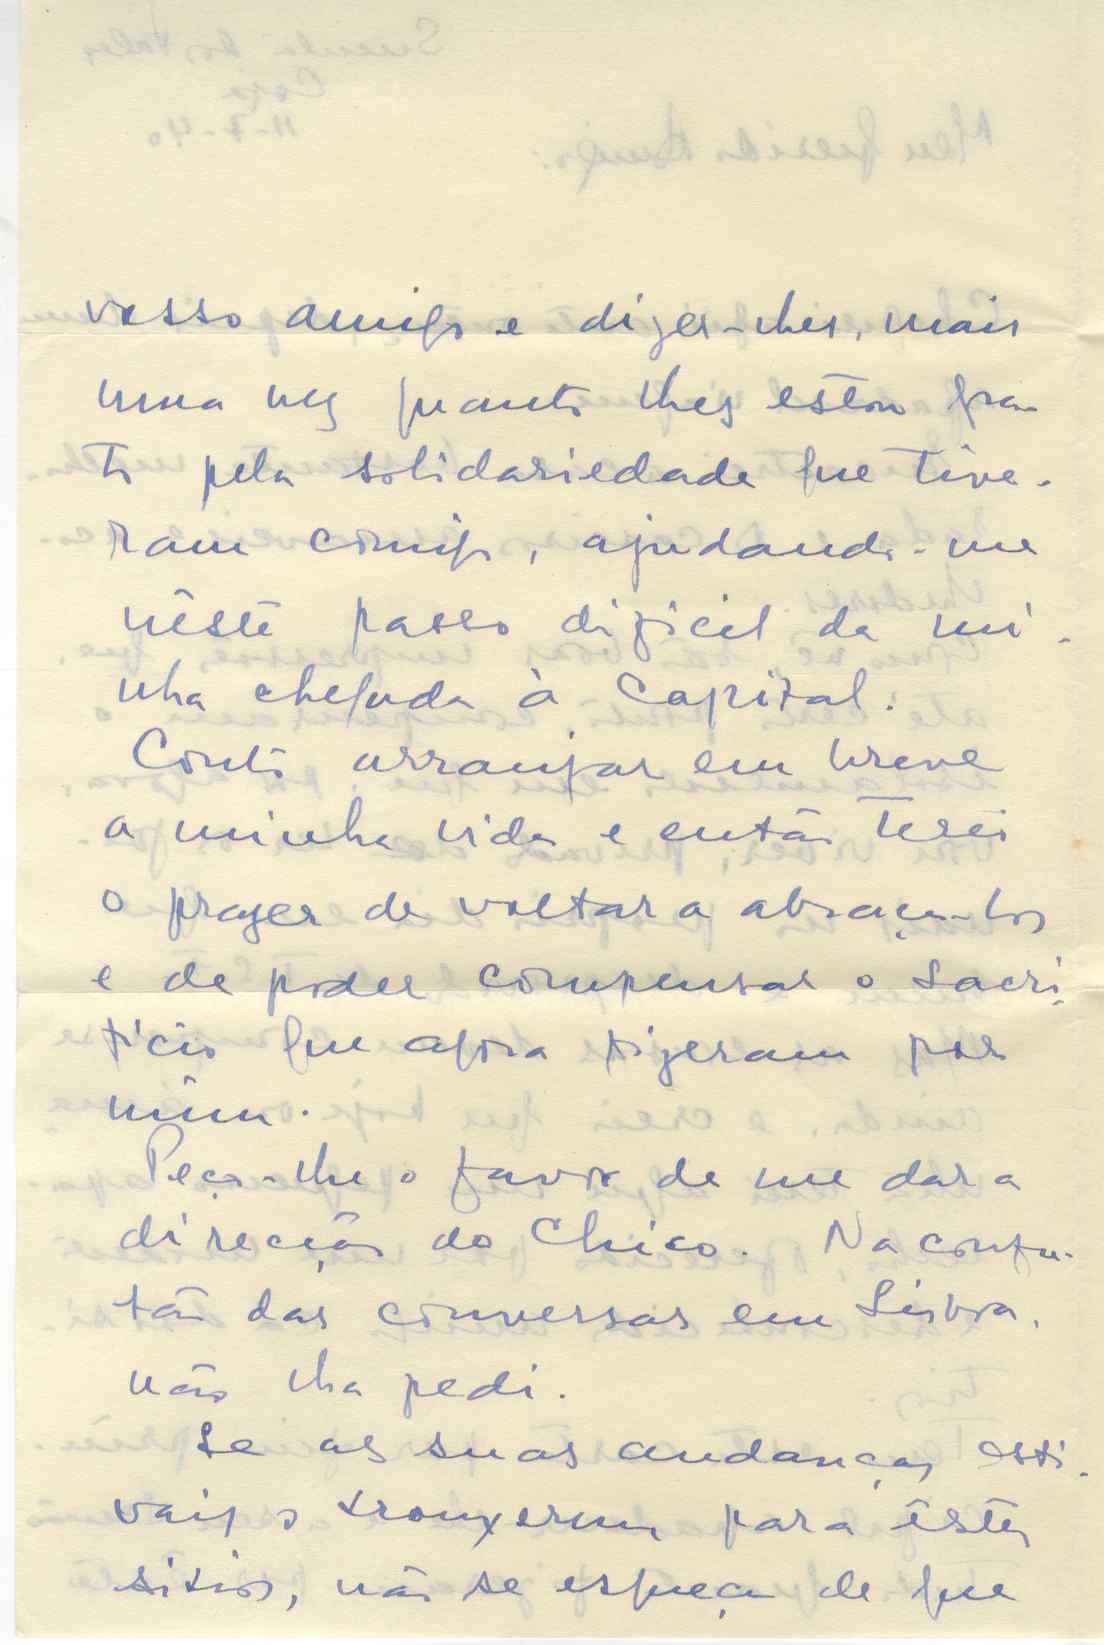 vosso amigo e dizer-lhes, mais
uma vez quanto lhes estou gra-
to pela solidariedade que tive-
ram comigo, ajudando-me
nêste passo dificil da mi-
nha chegada à Capital.
Conto arranjar em breve
a minha vida e então terei
o prazer de voltar a abraça-los
e de poder compensar o sacri-
ficio que agora fizeram por
mim.
Peço-lhe o favor de me dar a
direcção do Chico. Na confu-
são das conversas em Lisboa,
não lha pedi.
Se as suas andanças esti-
vais o trouxerem para êstes
sitios, não se esqueça de que